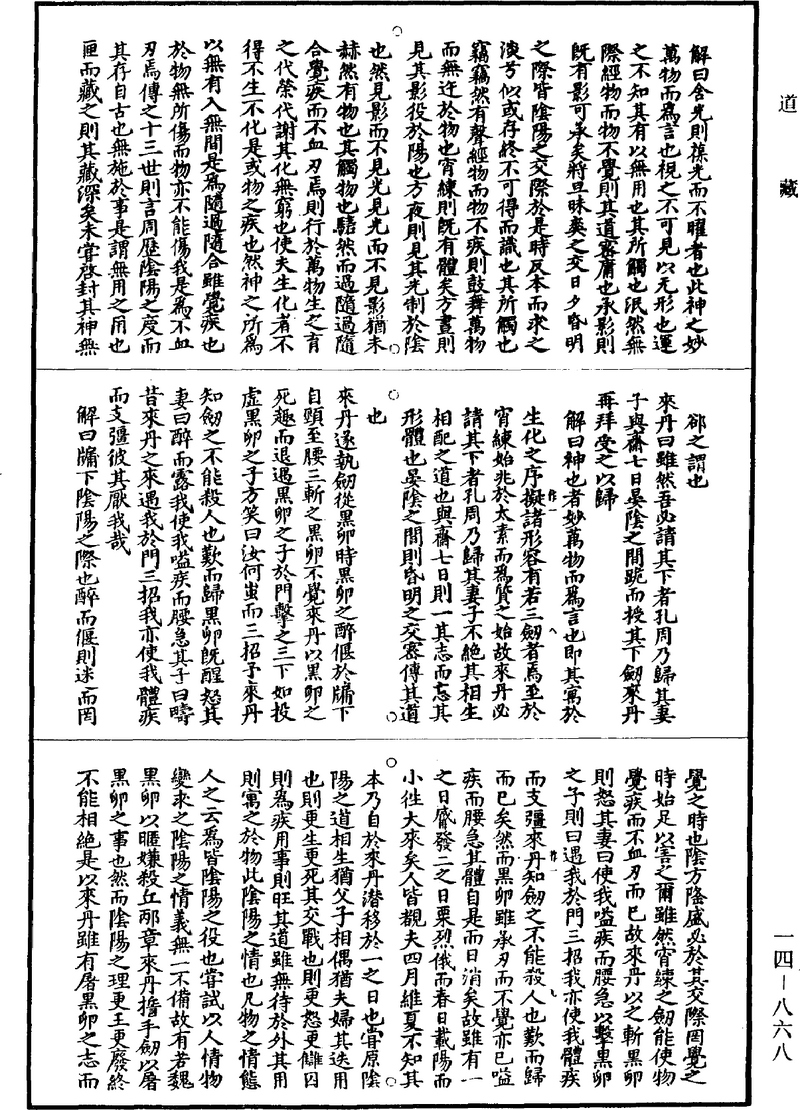 道藏
解曰含光則葆光而不曜者也此神之妙
萬物而為言也視之不可見以无形也運
之不知其有以無用也其所觸也泯然無
際經物而物不覺則其道密庸也承影則
既有影可承矣將旦昧爽之交日夕昏明
之際皆陰陽之交際於是時反本而求之
淡兮似或存終不可得而識也其所觸也
竊竊然有聲經物而物不疾則鼓舞萬物
而無迕於物也宵練則既有體矣方晝則
見其影役於陽也方夜則見其光制於陰
也然見影而不見光見光而不見影猶未
赫然有物也其觸物也騞然而過隨過隨
合覺疾而不血刃焉則行於萬物生之育
之代榮代謝其化無窮也使夫生化者不
得不生不化是或物之疾也然神之所為
以無有入無間是為隨過隨合雖覺疾也
於物無所傷而物亦不能傷我是為不血
刃焉傳之十三世則言周歷陰陽之度而
其存自古也無施於事是謂無用之用也
匣而藏之則其藏深矣未嘗啓封其神無
郤之謂也
來丹曰雖然吾必請其下者孔周乃歸其妻
子與齋七日晏陰之間跪而授其下劒來丹
再拜受之以歸
解曰神也者妙萬物而為言也即其寓於
生化之序擬諸形容有若三劒者焉至於
宵練始兆於太素而為質之始故來丹必
請其下者孔周乃歸其妻子不絶其相生
相配之道也與齋七日則一其志而忘其
形體也晏陰之間則昏明之交密傳其道
也
來丹遂執劒從黑卵時黑卵之醉偃於牖下
自頸至腰三斬之黑卵不覺來丹以黑卵之
死趣而退遇黑卵之子於門擊之三下如投
虛黑卵之子方笑曰汝何蚩而三招予來丹
知劒之不能殺人也歎而歸黑卵既醒怒其
妻曰醉而露我使我嗌疾而腰急其子曰疇
昔來丹之來遇我於門三招我亦使我體疾
而支彊彼其厭我哉
解曰牖下陰陽之際也醉而偃則迷而罔
覺之時也陰方隆盛必於其交際罔覺之
時始足以害之爾雖然宵練之劒能使物
覺疾而不血刃而已故來丹以之斬黑卵
則怒其妻曰使我嗌疾而腰急以擊黑卵
之子則曰遇我於門三招我亦使我體疾
而支彊來丹知劒之不能殺人也歎而歸
而已矣然而黑卵雖承刃而不覺亦已嗌
疾而腰急其體自是而日消矣故雖有一
之日觱發二之日栗烈俄而春日載陽而
小徃大來矣人皆覩夫四月維夏不知其
本乃自於來丹潛移於一之日也嘗原陰
陽之道相生猶父子相偶猶夫婦其迭用
也則更生更死其交戰也則更怒更讎囚
則為疾用事則旺其道雖無待於外其用
則寓之於物此陰陽之情也凡物之情態
人之云為皆陰陽之役也嘗試以人情物
變求之陰陽之情義無一不備故有若魏
黑卵以暱嫌殺丘邴章來丹揝手劒以屠
黑卵之事也然而陰陽之理更王更廢終
不能相絶是以來丹雖有屠黑卵之志而
一四-八六八